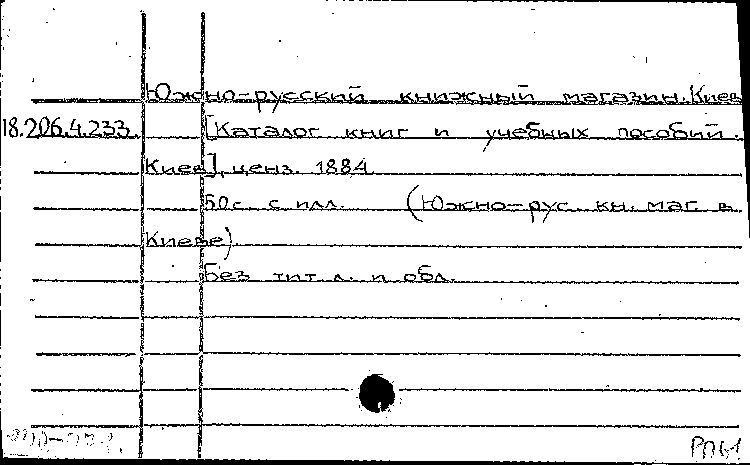 Южно-русский книжный магазин. Киев
18.206.4.233. [Каталог книг и учебных пособий.
Киев], ценз. 1884
50с. с илл. (Южно-рус. кн. маг. в
Киеве).
Без тит. л. и обл.